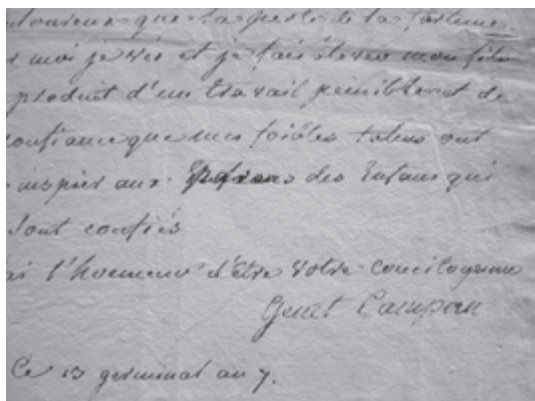 que la perte de la fortune.
moi je vis et je fais élever mon fils
produit d'un travail pénible et de
confiance que mes foibles talens ont
inspirer aux des Enfans qui
sont confiés
ai l'honneur d'être votre concitoyenne
Genet Campan
Ce 13 germinal an 7.